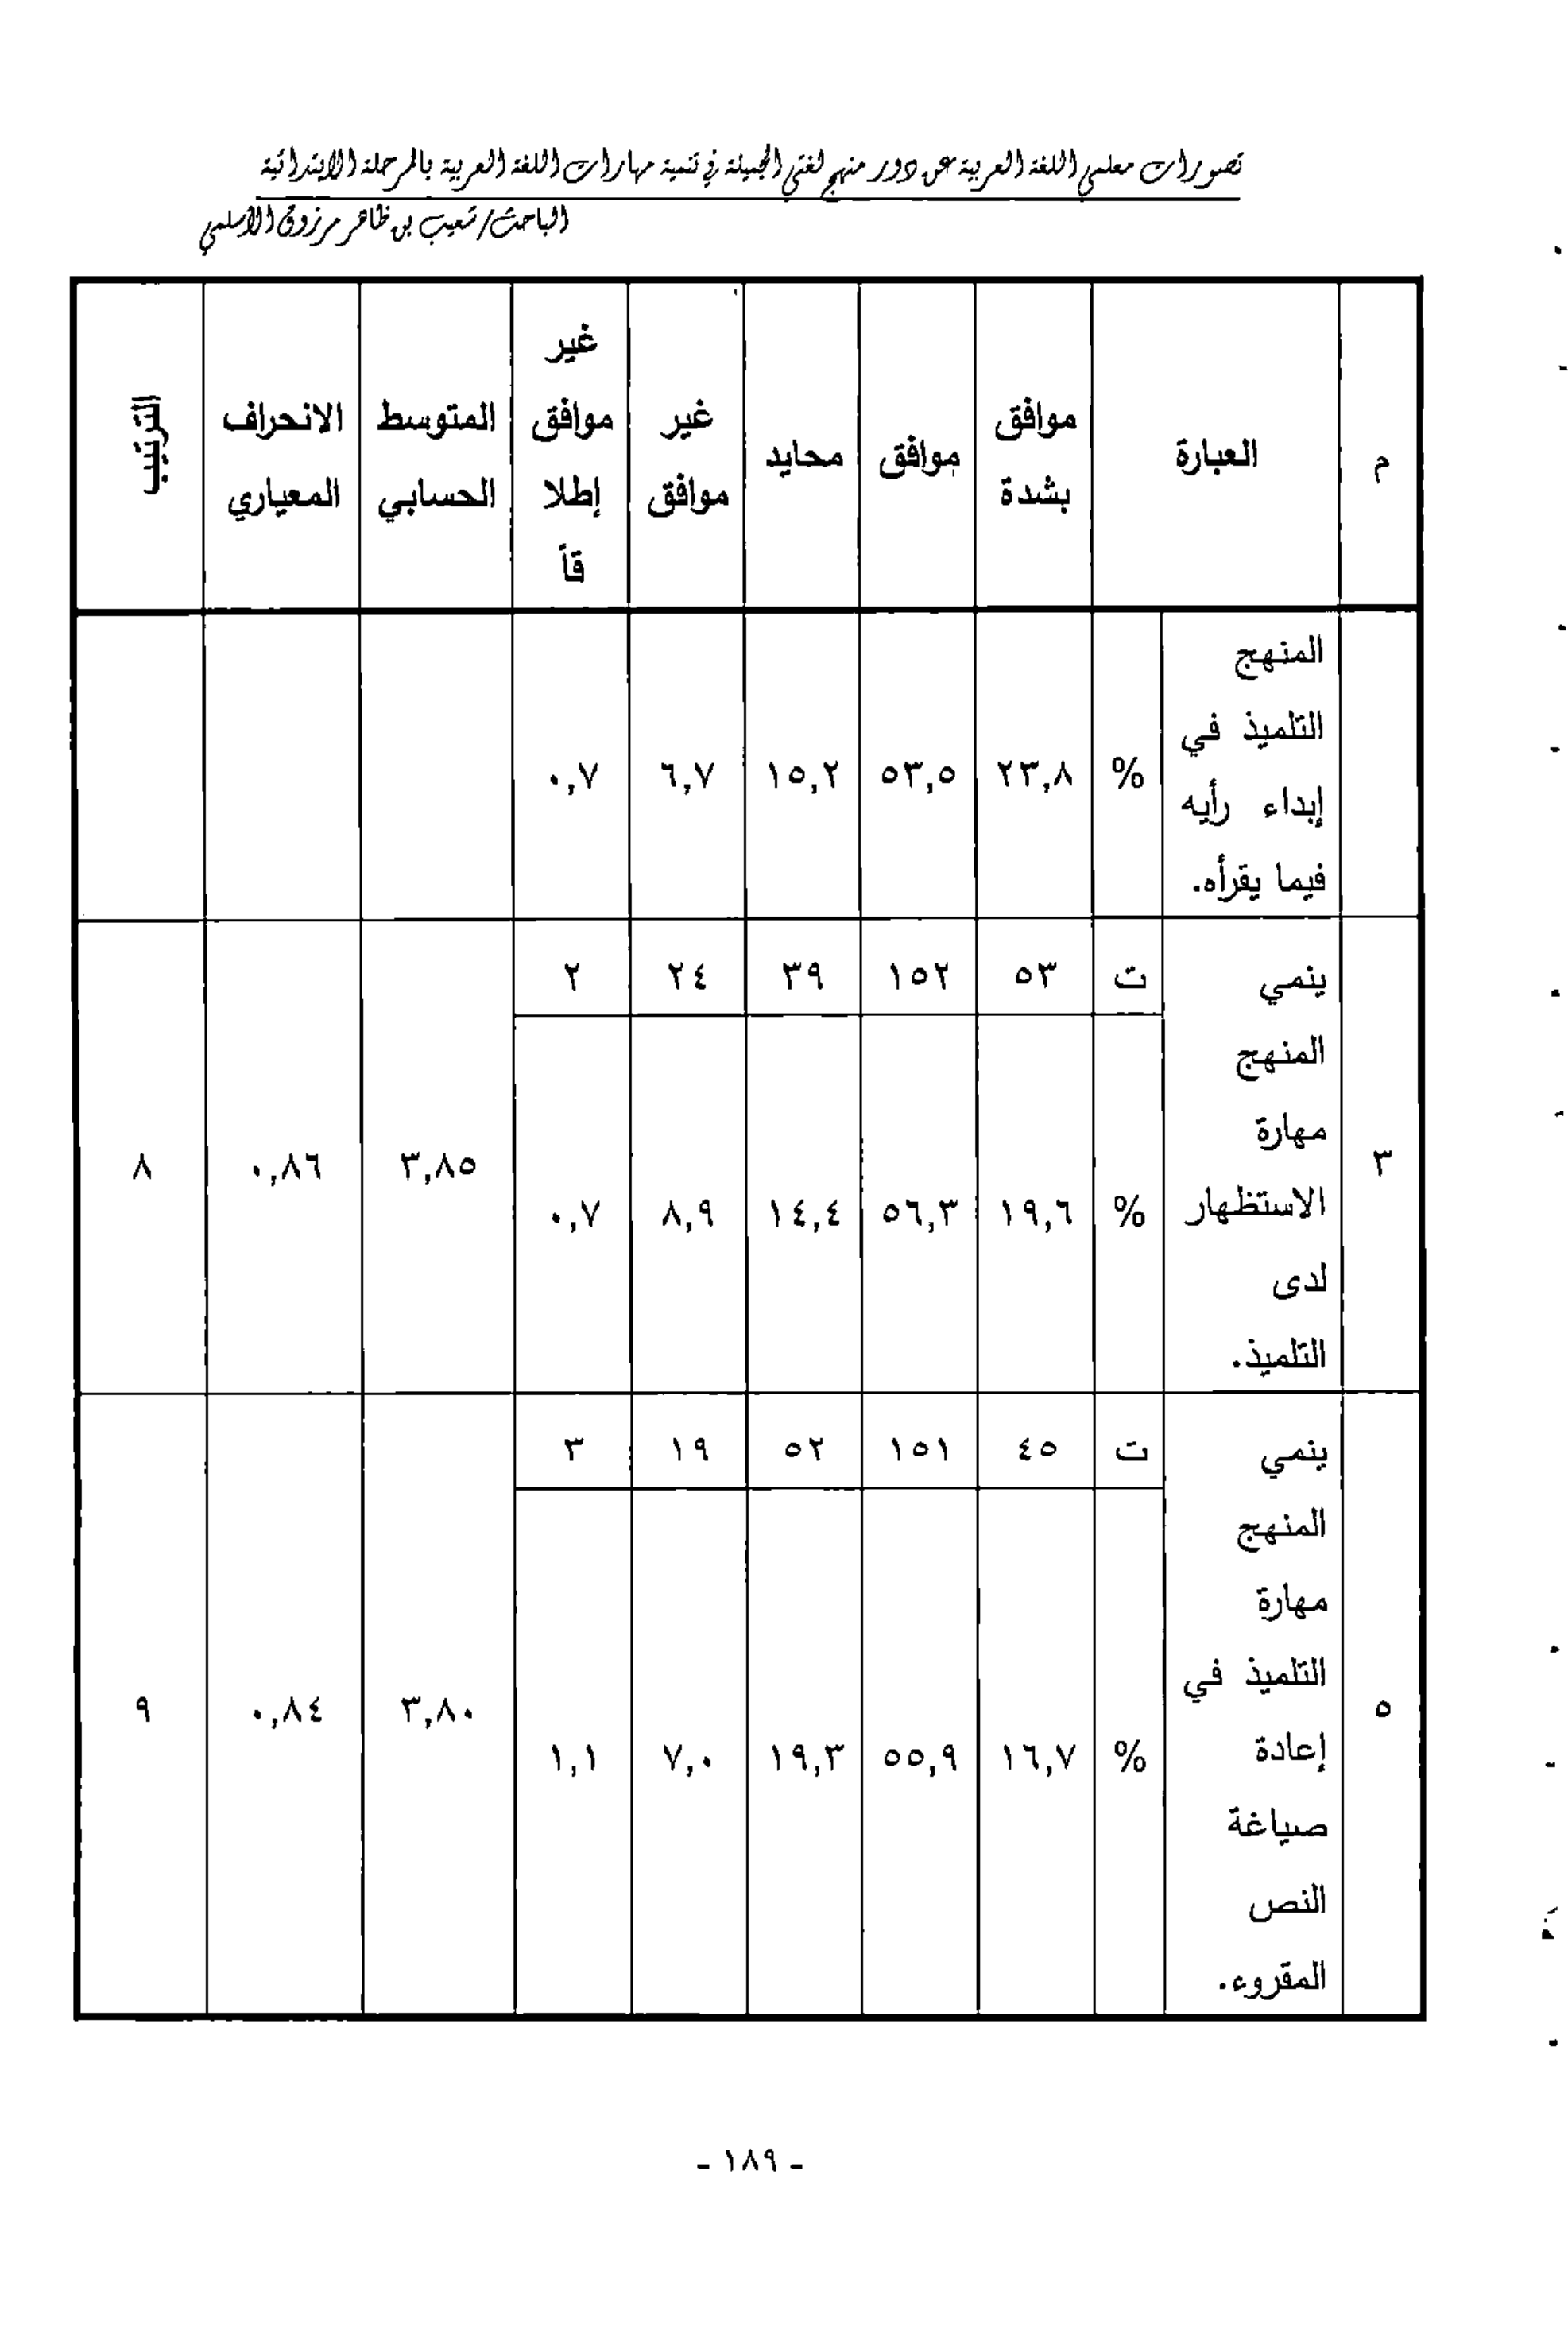 تصورات معلمي اللغة العربية عن دور منهج لغتي الجميلة في تنمية مهارات اللغة العربية بالمرحلة الابتدائية
الباحث/ شعيب بن ظاهر مرزوق الاسلمي
م
العبارة
موافق
بشدة
موافق
محايد
غير
موافق
غير
موافق
إطلا
قاً
المتوسط
الحسابي
الانحراف
المعياري
الترتيب
المنهج
التلميذ في
إبداء رأيه
فيما يقرأه.
% ٢٣,٨ ٥٣,٥ ١٥,٢ ٦,٧ ٠,٧
٣
ينمي
المنهج
مهارة
الاستظهار
لدى
التلميذ.
ت ٥٣ ١٥٢ ٣٩ ٢٤ ٢
% ١٩,٦ ٥٦,٣ ١٤,٤ ٨,٩ ٠,٧
٣,٨٥ ٠,٨٦ ٨
٥
ينمي
المنهج
مهارة
التلميذ في
إعادة
صياغة
النص
المقروء.
ت ٤٥ ١٥١ ٥٢ ١٩ ٣
% ١٦,٧ ٥٥,٩ ١٩,٣ ٧,٠ ١,١
٣,٨٠ ٠,٨٤ ٩
- ١٨٩ -